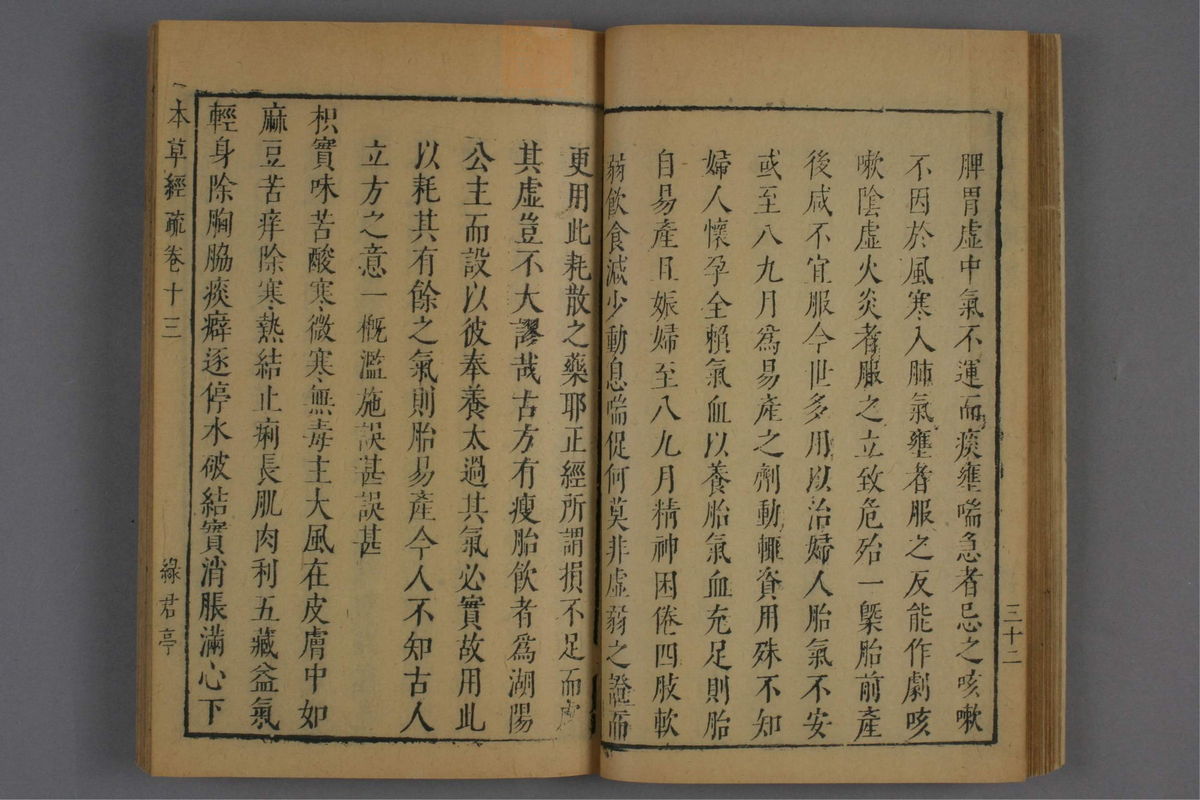 脾胃虛中氣不運而痰壅喘急者忌之咳嗽
不因於風寒入肺氣壅者服之反能作劇咳
嗽陰虛火炎者服之立致危殆一槩胎前產
後咸不宜服今世多用以治婦人胎氣不安
或至八九月爲易產之劑動輒資用殊不知
婦人懷孕全賴氣血以養胎氣血充足則胎
自易產且娠婦至八九月精神困倦四肢軟
弱飲食減少動息喘促何莫非虛弱之證而
三十二
更用此耗散之藥耶正經所謂損不足而虛
其虛豈不大謬哉古方有瘦胎飲者爲湖陽
公主而設以彼奉養太過其氣必實故用此
以耗其有餘之氣則胎易產今人不知古人
立方之意一概濫施誤甚誤甚
枳實味苦酸寒微寒無毒主大風在皮膚中如
麻豆苦痒除寒熱結止痢長肌肉利五藏益氣
輕身除胸脇痰癖逐停水破結實消脹滿心下
本草經疏卷十三
綠君亭